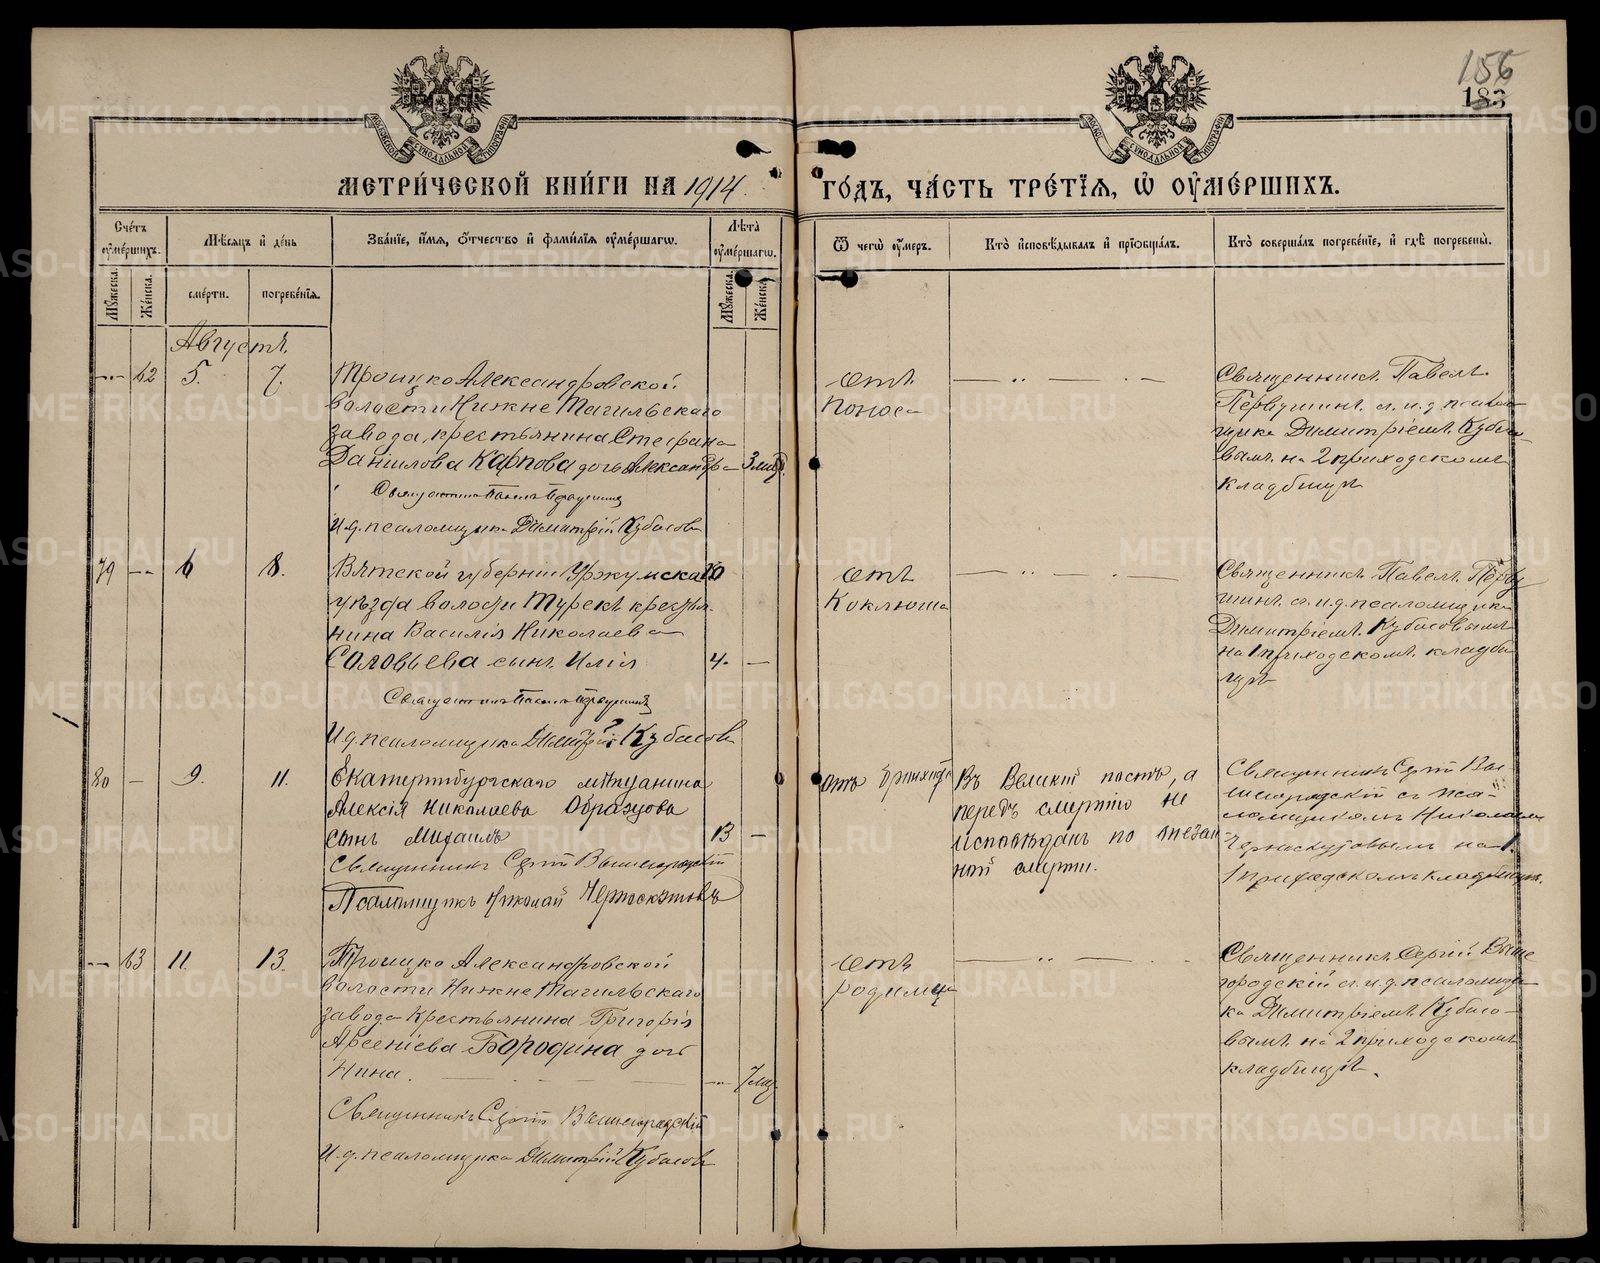 156
183
МЕТРИ́ЧЕСКОЙ КНИ́ГИ НА 1914. ГО́ДЪ, ЧА́СТЬ ТРЕ́ТІѦ, Ѡ҆ ОУ҆МЕ́РШИХЪ.
Сче́тъ оу҆ме́ршихъ.
Мѣ́сяцъ и҆ де́нь
Зва́нїе, и҆́мя, ѻ҆́тчество и҆ фами́лїя оу҆ме́ршагѡ.
Лѣ́та оу҆ме́ршагѡ.
Ѿ чегѡ̀ оу҆́меръ.
Кто̀ и҆сповѣ́дывалъ и҆ прїѡбща́лъ.
Кто̀ соверша́лъ погребе́нїе, и҆ гдѣ̀ погребены̀.
Мꙋ́жеска.
Же́нска.
сме́рти.
погребе́нїя.
Мꙋ́жеска.
Же́нска.
Августъ.
62 5. 7.
Троицко Александровской
волости Нижне Тагильскаго
завода, крестьянина Стефана
Даніилова Карпова дочь Александра
И.д. псаломщика Димитрій Кубасовъ
отъ
поноса
Священникъ Павелъ
Первушинъ съ и.д. псалом-
щика Димитріемъ Кубасо-
вымъ на 2 приходскомъ
кладбищѣ
79 6 8.
Вятской губерніи Уржумскаго
уѣзда волости Турекъ крестья-
нина Василія Николаева
Соловьева сынъ Илія 4. —
Священникъ Павелъ Первушинъ
И.д. псаломщика Димитрій Кубасовъ
отъ
Коклюша
Священникъ Павелъ Перву-
шинъ съ и.д. псаломщика
Димитріемъ Кубасовымъ
на 1 приходскомъ кладби-
щѣ
80 — 9. 11.
Екатеринбургскаго мѣщанина
Алексія Николаева Образцова
сынъ Михаилъ 13 —
Священникъ Сергій Вышегородскій
Псаломщикъ Николай Черноскутовъ
отъ
Въ Великій постъ, а
передъ смертію не
исповѣданъ по внезап-
ной смерти.
Священникъ Сергій Вы-
шегородскій съ пса-
ломщикомъ Николаемъ
Черноскутовымъ на
1 приходскомъ кладбищѣ.
63 11. 13.
Троицко Александровской
волости Нижне Тагильскаго
завода крестьянина Григорія
Арсеніева Бородина дочь
Нина.
Священникъ Сергій Вышегородскій
И.д. псаломщика Димитрій Кубасовъ
отъ
родимца
Священникъ Сергій Выше-
городскій съ и.д. псаломщи-
ка Димитріемъ Кубасо-
вымъ на 2 приходскомъ
кладбищѣ.
METRIKI.GASO-URAL.RU